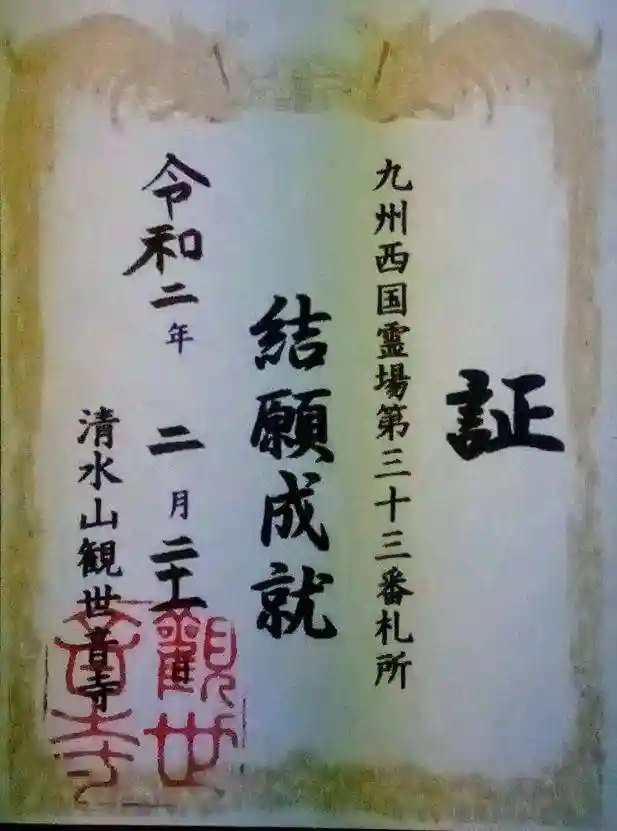 証
九州西国霊場第三十三番札所
結願成就
令和二年 二月二十一日
清水山観世音寺
觀世
音寺